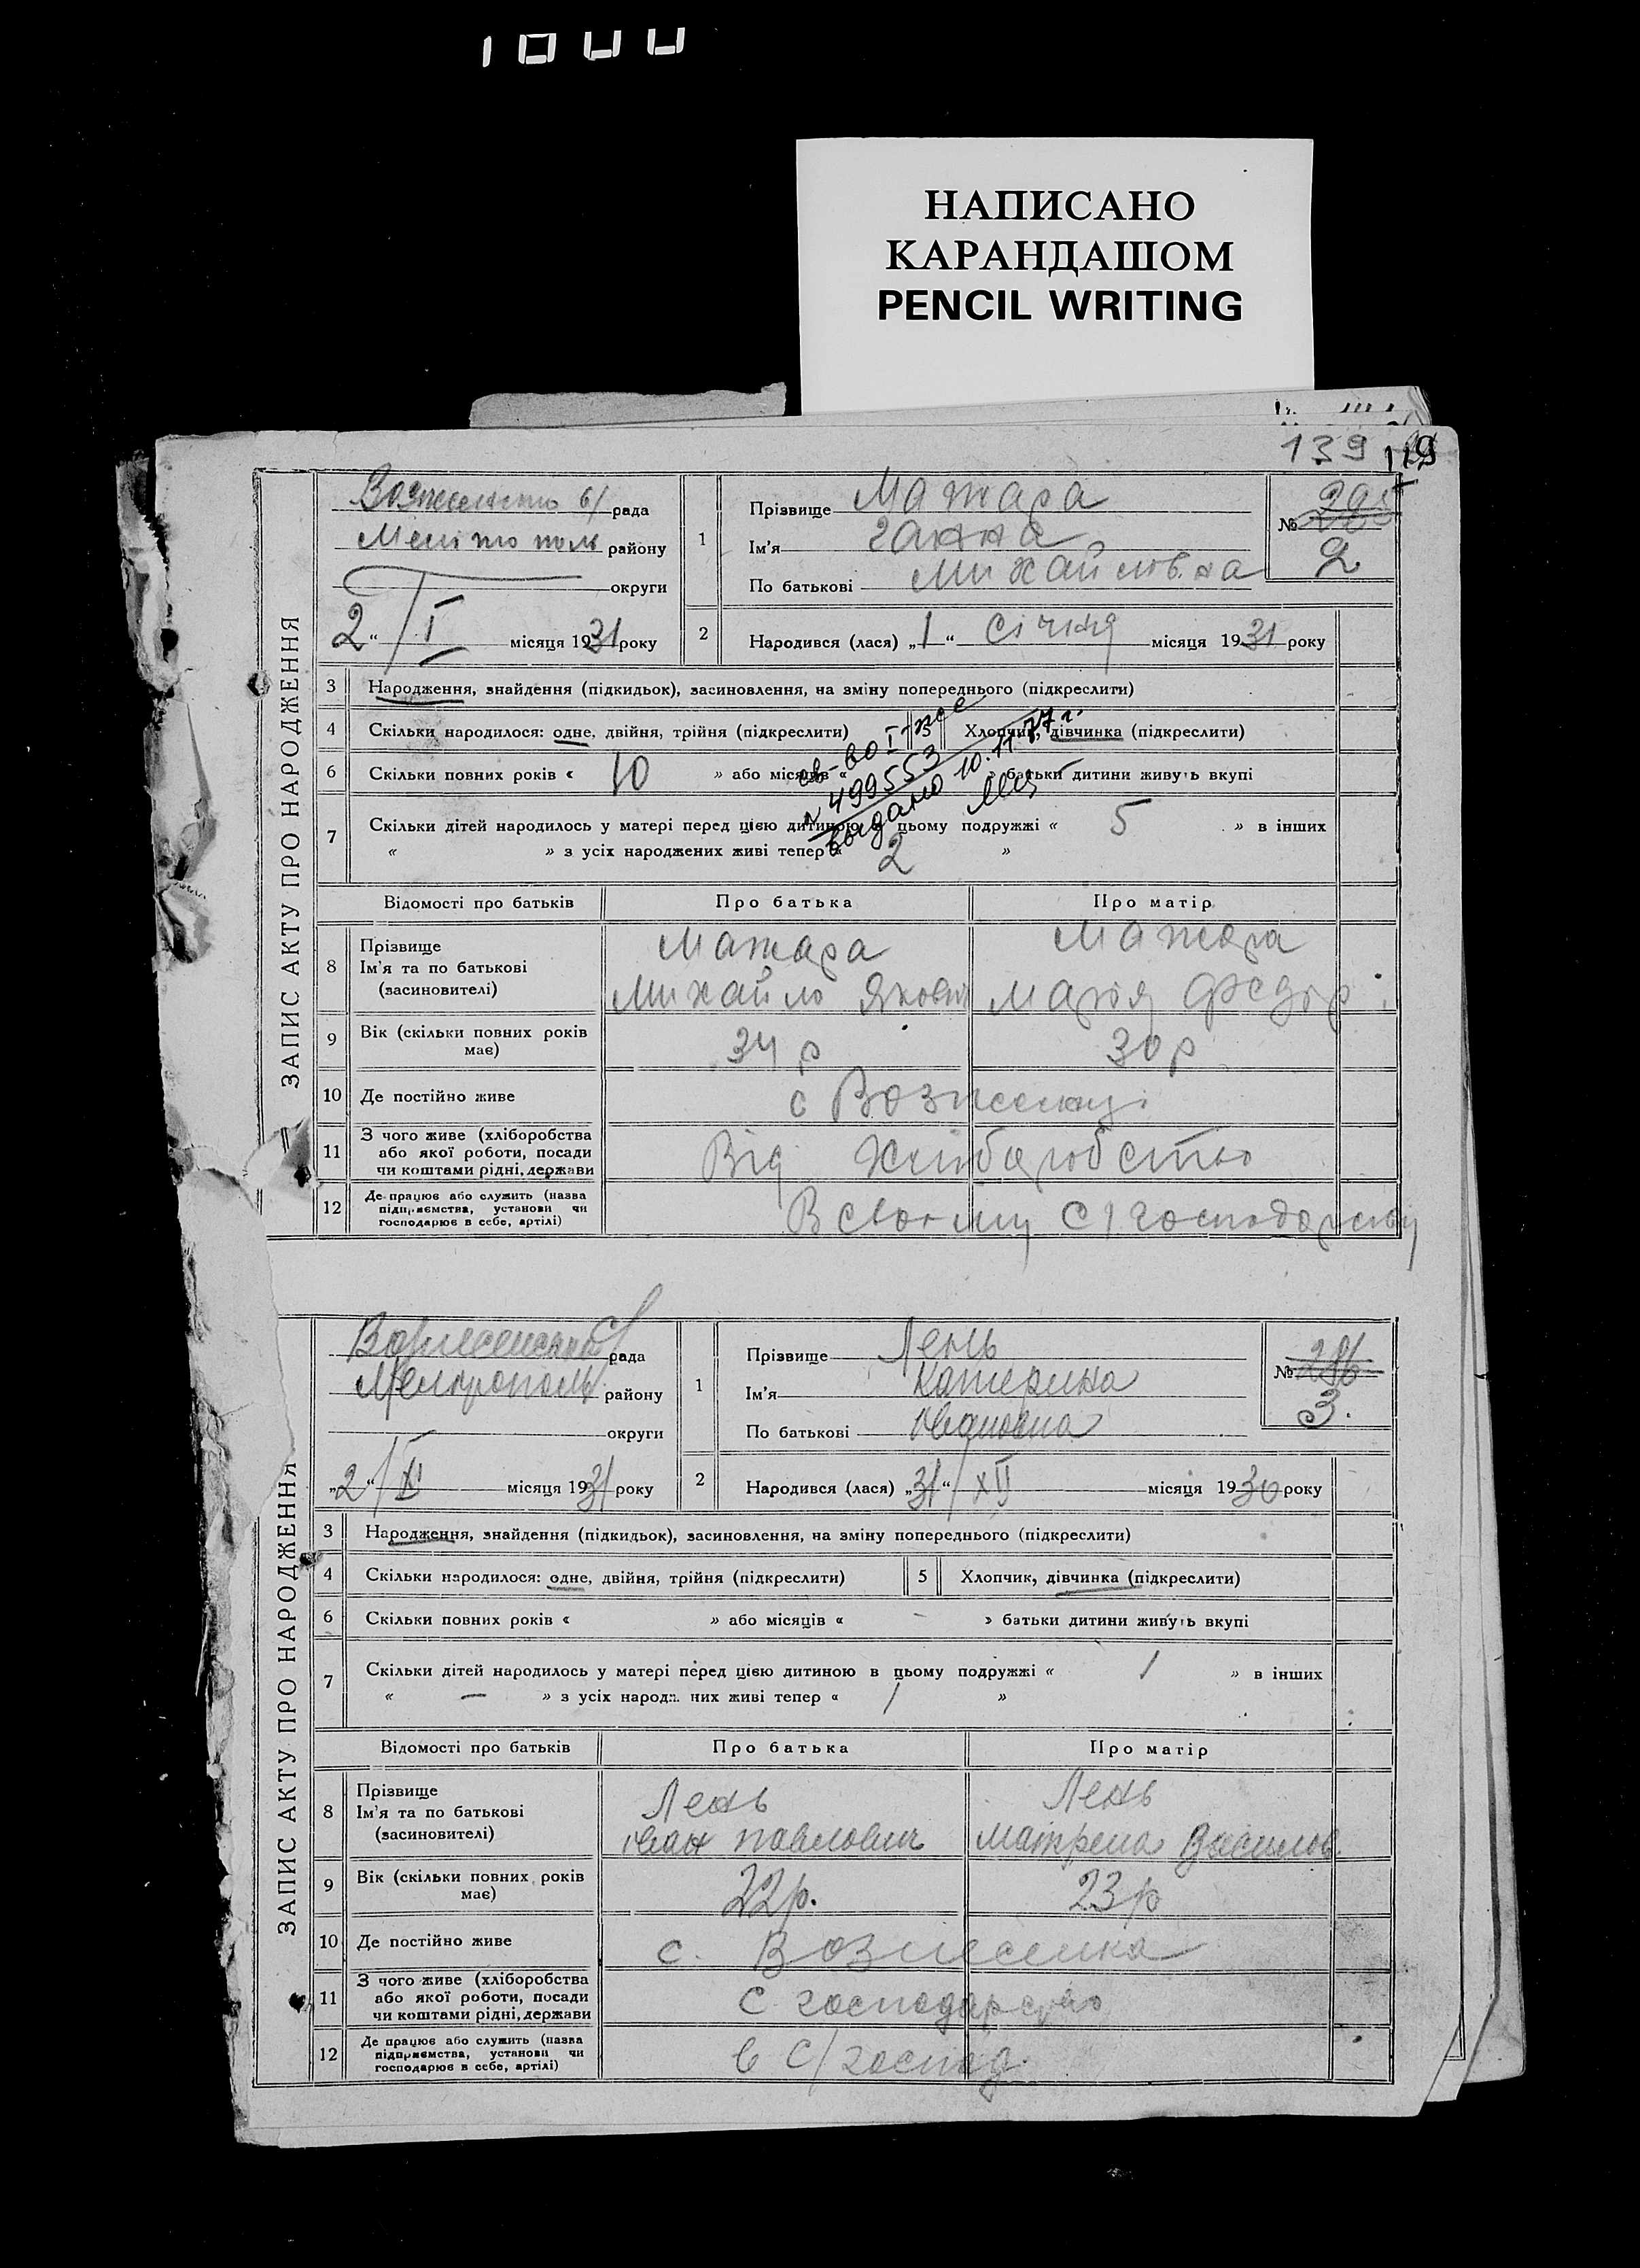 НАПИСАНО
КАРАНДАШОМ
PENCIL WRITING
139 119
ЗАПИС АКТУ ПРО НАРОДЖЕННЯ
рада
Мелітополь району
округи
2 “ / I місяця 1931 року
1
Прізвище Мажара
Ім'я Ганна
По батькові Михайловна
№ 2
2
Народився (лася) „1“ Січня місяця 1931 року
3 Народження, знайдення (підкидьок), засиновлення, на зміну попереднього (підкреслити)
4 Скільки народилося: одне, двійня, трійня (підкреслити) 5 Хлопчик, дівчинка (підкреслити)
6 Скільки повних років « 10 » або місяців « » батьки дитини живуть вкупі
св-во I-
№ 499553
выдано 10.11.77 г.
7 Скільки дітей народилось у матері перед цією дитиною в цьому подружжі « 5 » в інших
« » з усіх народжених живі тепер « 2 »
Відомості про батьків Про батька Про матір
8 Прізвище Мажара Мажара
Ім'я та по батькові
(засиновителі) Михайло Якович Марія Федор
9 Вік (скільки повних років має) 34 р 30 р
10 Де постійно живе с Вознесенці
11 З чого живе (хліборобства
або якої роботи, посади
чи коштами рідні, держави Від Хліборобство
12 Де працює або служить (назва
підприємства, установи чи
господарює в себе, артілі) В своєму С/господарству
ЗАПИС АКТУ ПРО НАРОДЖЕННЯ
Вознесенська с/ рада
Мелітополь району
округи
„2“ / місяця 1931 року
1
Прізвище Лень
Ім'я Катерина
По батькові Івановна
№ 286
3.
2
Народився (лася) „31“ / XII місяця 1930 року
3 Народження, знайдення (підкидьок), засиновлення, на зміну попереднього (підкреслити)
4 Скільки народилося: одне, двійня, трійня (підкреслити) 5 Хлопчик, дівчинка (підкреслити)
6 Скільки повних років « » або місяців « – » батьки дитини живуть вкупі
7 Скільки дітей народилось у матері перед цією дитиною в цьому подружжі « 1 » в інших
« — » з усіх народж них живі тепер « 1 »
Відомості про батьків Про батька Про матір
8 Прізвище Лень Лень
Ім'я та по батькові
(засиновителі) Іван Павлович Матрена Васильов.
9 Вік (скільки повних років має) 22 р. 23 р
10 Де постійно живе с. Вознесенка
11 З чого живе (хліборобства
або якої роботи, посади
чи коштами рідні, держави С господарство
12 Де працює або служить (назва
підприємства, установи чи
господарює в себе, артілі) в С/господ.